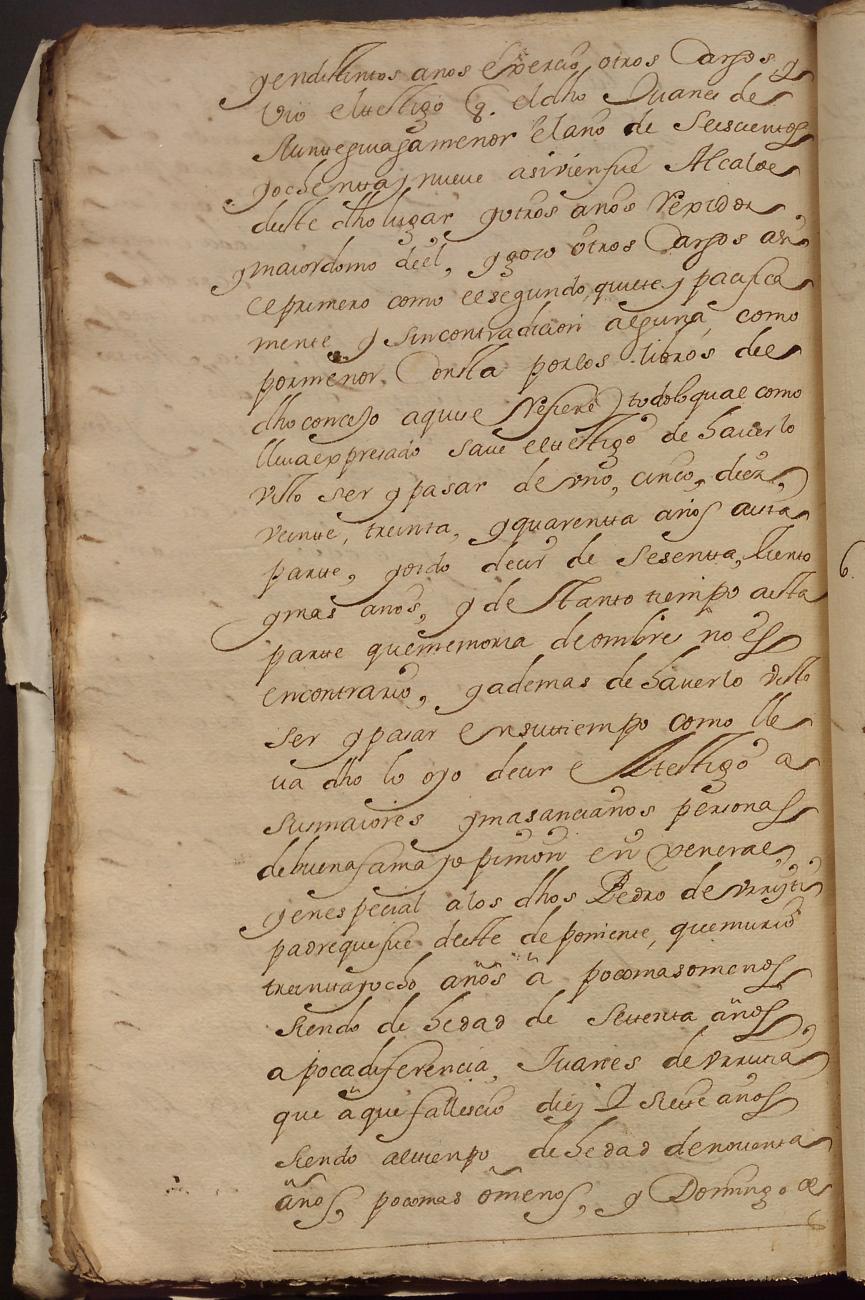 yendistintos años exercio otros Cargos y
vio eltestigo q. eldho Juanes de
menor elaño de Seiscientos
yochenta y nueve asivienfue Alcalde
deste dho lugar yotros años rexidor
ymaiordomo deel, ygozo otros Cargos asi
el primero como elsegundo, quieta y pacifica
mente y sincontradicion alguna, como
pormenor Consta porlos libros del
dhoconcejo aquese refiere, todoloqual como
llevaexpresado save eltestigo de haverlo
visto ser ypasar de uno, cinco, diez,
veinte, treinta, yquarenta años aesta
parte, yoido decir de sesenta, Ziento
ymas años, y de Stanto tiempo aesta
parte quememoria deombre no es
encontrario, yademas de haverlo visto
ser ypasar ensutiempo como lle
va dho lo oyo decir el testigo a
susmaiores ymasancianos personas
debuenafama yopinion en xeneral,
yenespecial alos dhos Pedro de urruti
padrequefue deste deponiente, quemurio
treintayocho años a pocomasomenos
siendo de hedad de Setenta años
apocadiferencia, Juanes de urrutia
que a quefallescio diez y siete años
siendo altiempo dehedad denoventa
años, pocomas omenos, y Domingo de
6